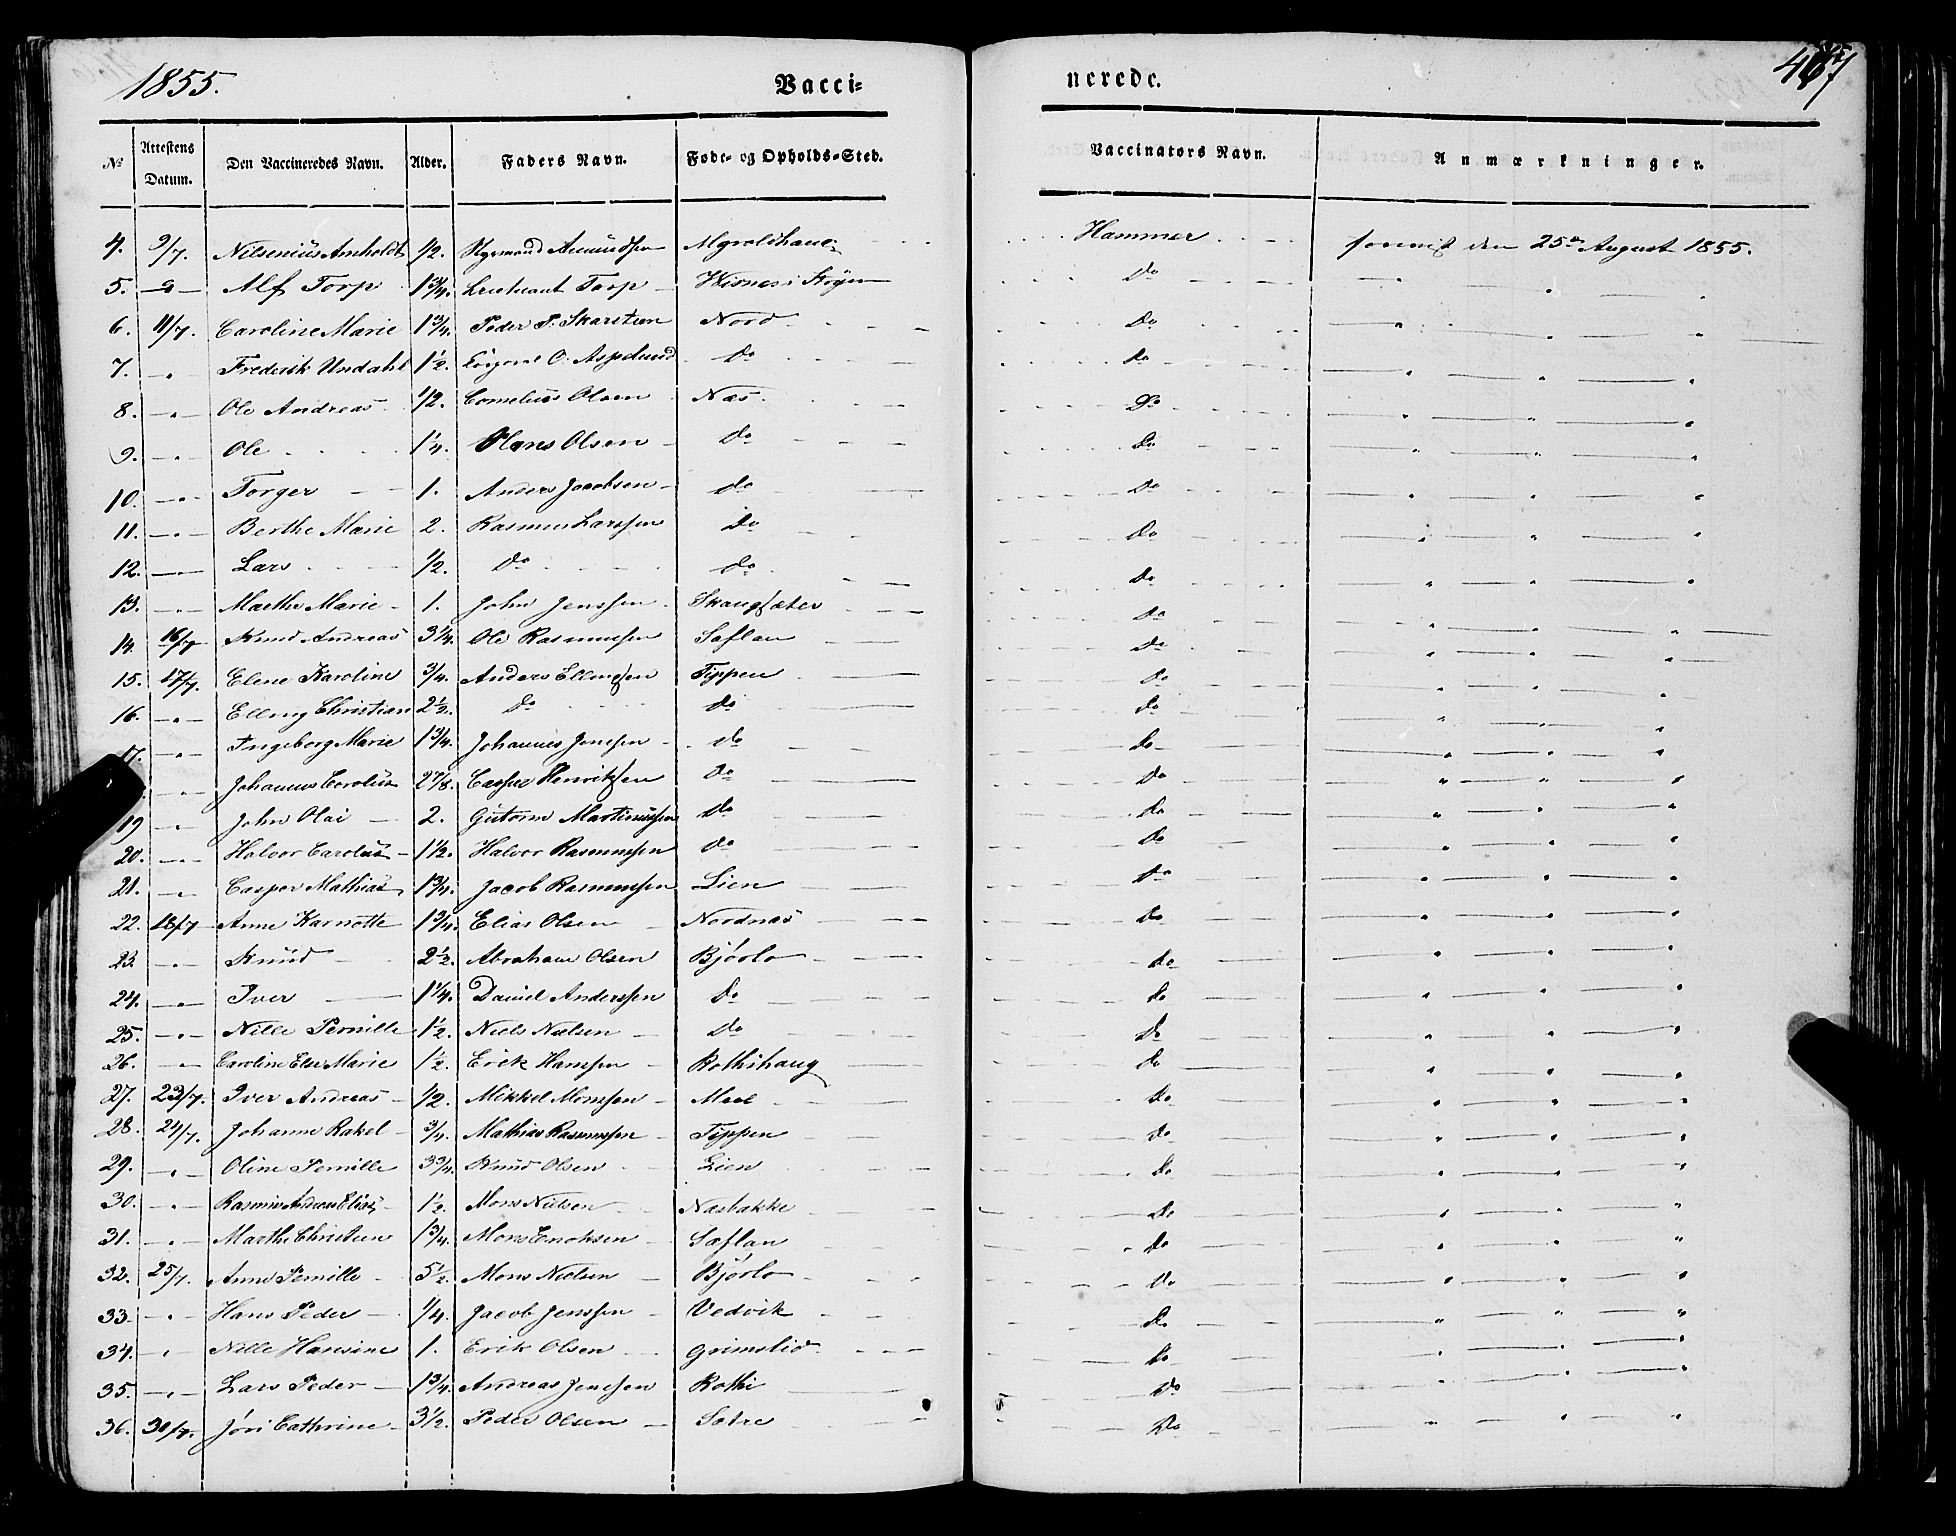 1855.
Vacci=
nerede.
No
Attestens Datum.
Den Vaccineredes Navn.
Alder.
Faders Navn.
Føde- og Opholds-Sted.
Vaccinators Navn.
Anmærkninger.
4. 9/7. Nilsenius Amholdt 1/2. Amundsen Hammer den 25de August 1855.
5. Alf Torp 1 3/4. Lieutnant Torp Do
6. 11/7. Caroline Marie 1 3/4. Peder P. Skarsteen Nord Do
7. " Frederik Undahl 1 1/2. O. Aspelund Do Do
8. " Ole Andreas 1/2. Cornelius Olsen Næs Do
9. " Ole 1 1/4. Hans Olsen Do Do
10. " Torger 1. Anders Jacobsen do Do
11. " Berthe Marie 2. Rasmus Larssen Do Do
12. " Lars 1/2. Do do Do
13. " Marthe Marie 1. John Jenssen Skaugsæter Do
14. 16/7 Knud Andreas 3 1/4. Ole Rasmussen Saflan Do
15. 17/7. Elene Karoline 3/4. Anders Ellingsen Tippen Do
16. " Elling Christian 2 1/2. Do do Do
17. " Ingeborg Marie 1 3/4. Johannes Jensen do Do
" Johannes Carolius 2 7/8. Casper Henriksen Do Do
19 " John Olai 2. Gutorm Martinussen do Do
20. " Halvor Carolus 1 1/2. Halvor Rasmussen do Do
21. " Casper Mathias 1 3/4. Jacob Rasmussen Lien Do
22. 18/7 Anne Karnotte 1 3/4. Elias Olsen Nordnæs Do
23. " Knud 2 1/2. Abraham Olsen Bjørlo do
24. " Iver 1 1/4. Daniel Anderssen Do do
25. " Nille Pernille 1 1/2. Niels Nielsen Do Do
26. " Caroline Else Marie 1 1/2. Erik Hanssen Rothihaug Do
27. 23/7. Iver Andreas 1/2. Mikkel Monssen Maal Do
28. 24/7. Johanne Rakel 3/4. Mathias Rasmussen Tippen Do
29. " Oline Pernille 3 3/4. Knud Olsen Lien Do
30. " Rasmus Andreas Elias 1 1/2. Mons Nielsen Næsbakke Do
31. " Marthe Christien 1 3/4. Mons Enoksen Sæflan Do
32. 25/7. Anne Pernille 5 1/2. Mons Nielsen Bjørlo Do
33. " Hans Peder 1/4. Jacob Jenssen Vedvik Do
34. " Nille Hansine 1. Erik Olsen Grimelid Do
35. " Lars Peder 1 3/4. Andreas Jenssen Rothi Do
36. 30/7. Jøri Cathrine 3 1/2. Peder Olsen Sætre Do